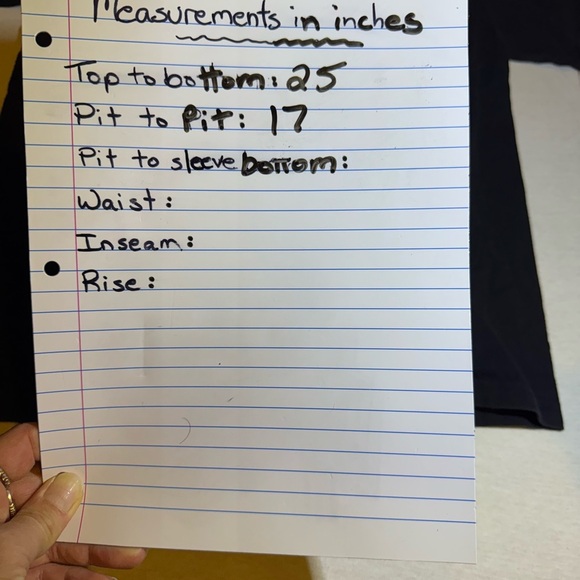 Measurements in inches
Top to bottom: 25
Pit to Pit: 17
Pit to sleeve bottom:
Waist:
Inseam:
Rise: